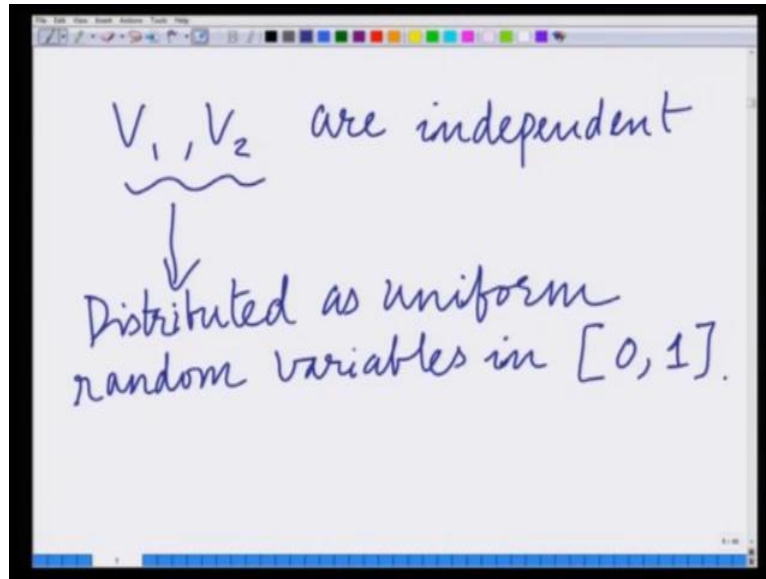 File Edit View Insert Actions Tools Help
V₁, V₂ are independent
Distributed as uniform
random variables in [0,1].